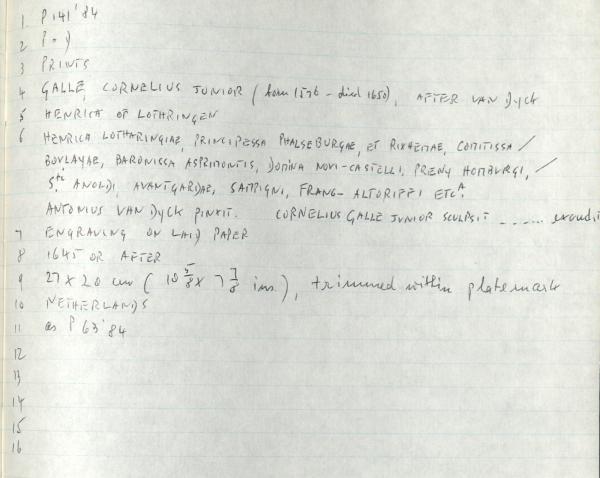 1 P 141'84
2 P-1
3 PRINTS
4 GALLE, CORNELIUS JUNIOR (born 1576 - died 1650), AFTER VAN DYCK
5 HENRICA OF LOTHRINGEN
6 HENRICA LOTHARINGIAE, PRINCIPESSA PHALSEBURGAE, ET RIXHEMAE, COMITISSA /
BOVLAYAE, BARONISSA ASPRIMONTIS, DOMINA NOVI-CASTELLI, PRENY HOMBURGI, /
S.ti ANOLDI, AVANTGARDAE, SAMPIGNI, FRANG- ALTORIPPI ETCA.
ANTONIUS VAN DYCK PINXIT. CORNELIUS GALLE JUNIOR SCULPSIT ....... excudit
7 ENGRAVING ON LAID PAPER
8 1645 OR AFTER
9 27 x 20 cm (10 5/8 x 7 7/8 ins.), trimmed within platemark
10 NETHERLANDS
11 as P 63'84
12
13
14
15
16